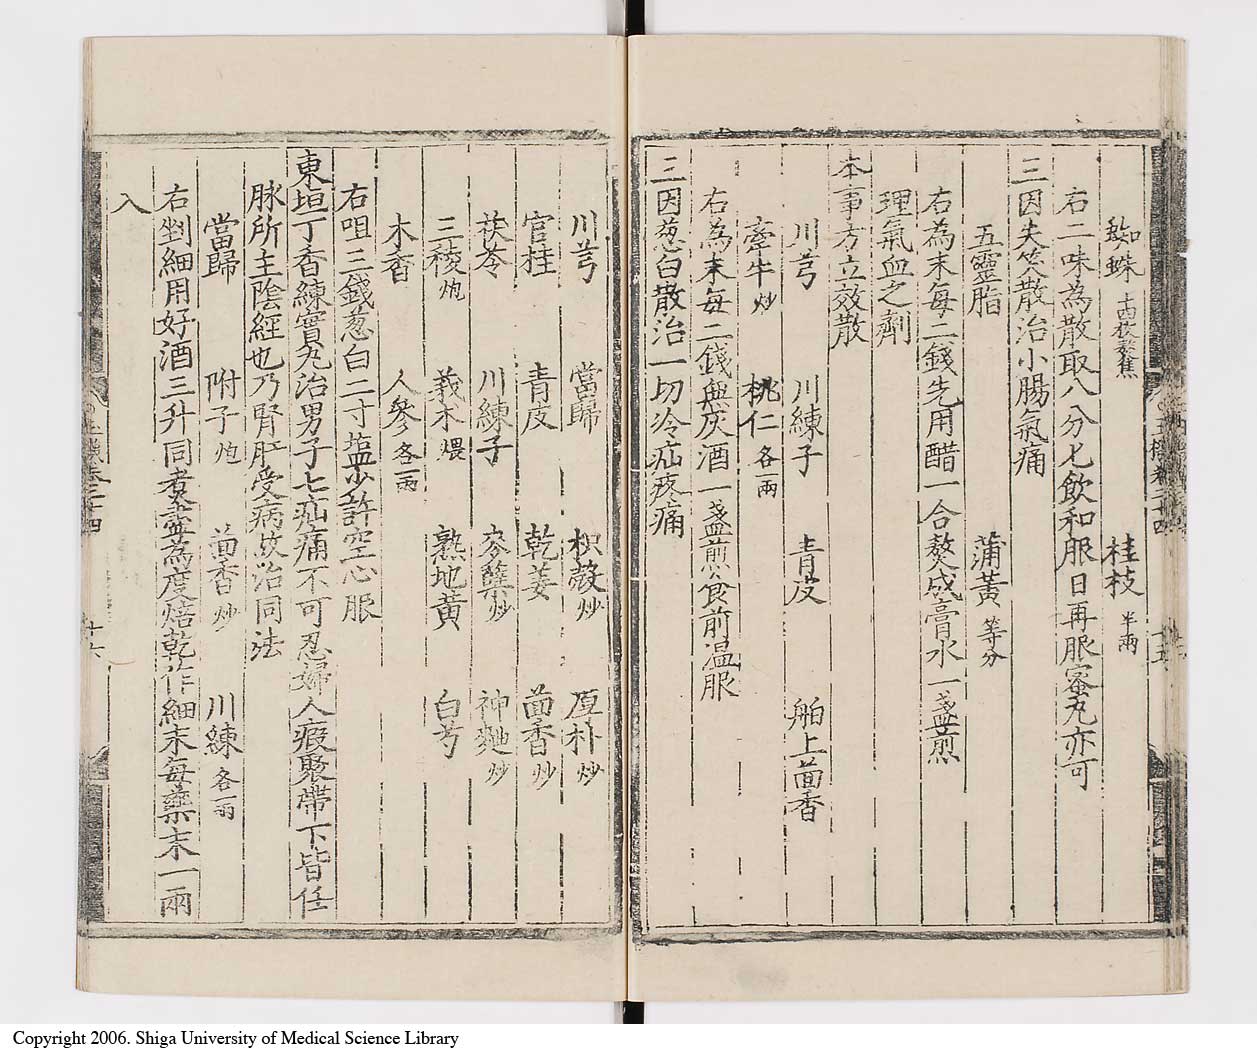 蜘蛛 十四枚熬焦 桂枝 半兩
右二味為散取八分匕飲和服日再服蜜丸亦可
三因失笑散治小腸氣痛
五靈脂 蒲黃 等分
右為末每二錢先用醋一合熬成膏水一盞煎
理氣血之劑
本事方立效散
川芎 川練子 青皮 舶上茴香
牽牛 炒 桃仁 各一兩
右為末每二錢無灰酒一盞煎食前温服
三因葱白散治一切冷疝疼痛
川芎 當歸 枳殼 炒 厚朴 炒
官桂 青皮 乾姜 茴香 炒
茯苓 川練子 麥糵 炒 神麯 炒
三稜 炮 莪朮 煨 熟地黃 白芍
木香 人參 各一兩
右咀三錢葱白二寸塩少許空心服
東垣丁香練實丸治男子七疝痛不可忍婦人瘕聚帶下皆任
脉所主陰經也乃腎肝受病故治同法
當歸 附子 炮 茴香 炒 川練 各一兩
右剉細用好酒三升同煮盡為度焙乾作細末每藥末一兩
入
十五
十六
Copyright 2006. Shiga University of Medical Science Library